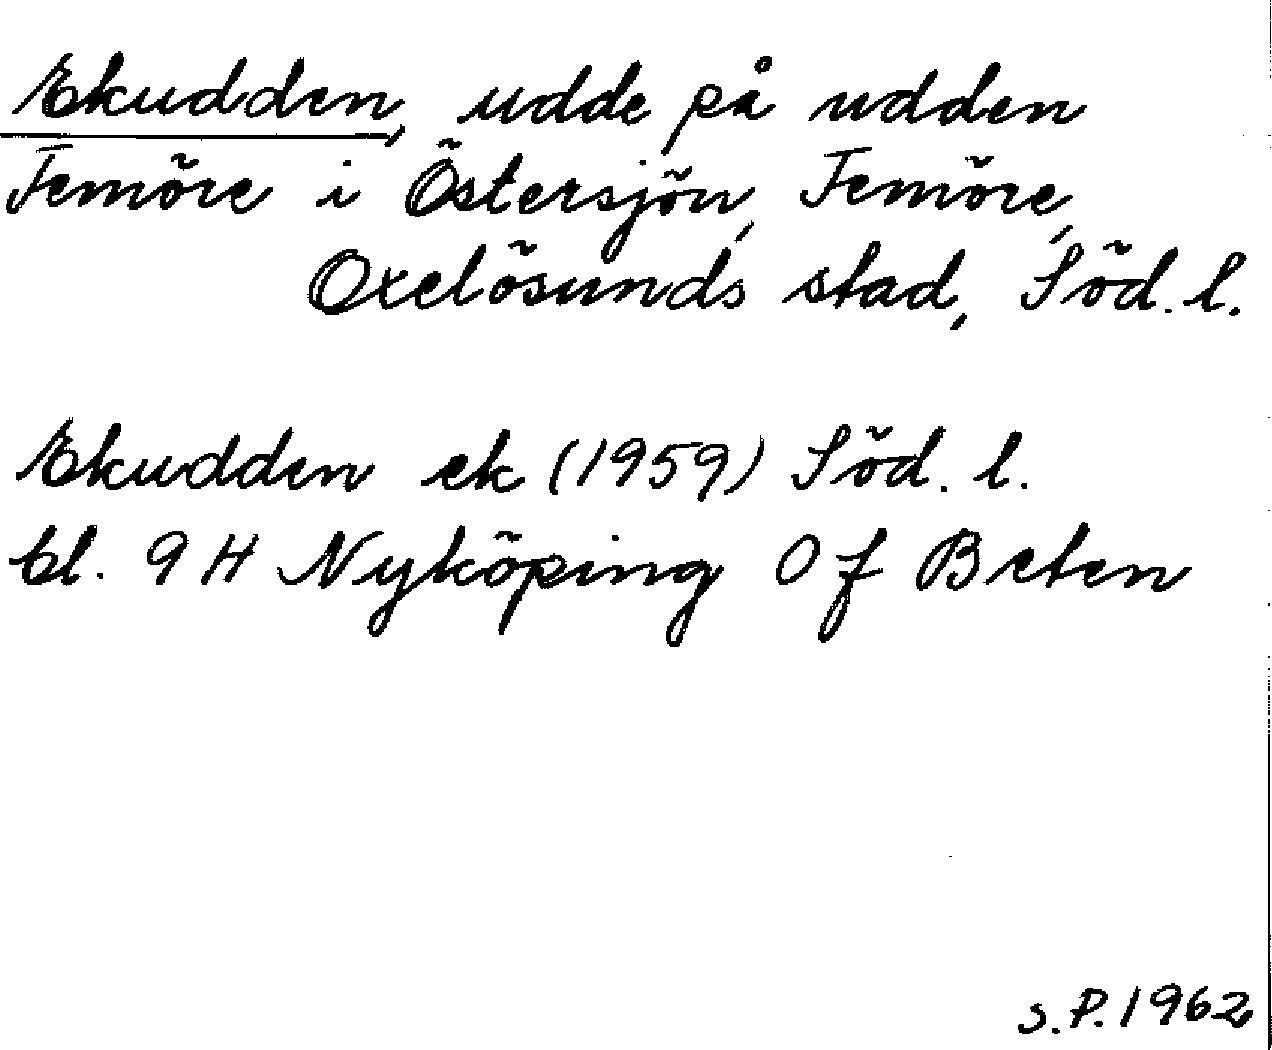 Ekudden, udde på udden
Femöre i Östersjön, Femöre,
Oxelösunds stad, Söd. l.
Ekudden ek (1959) Söd. l.
bl. 9 H Nyköping O f Beten
S.P. 1962